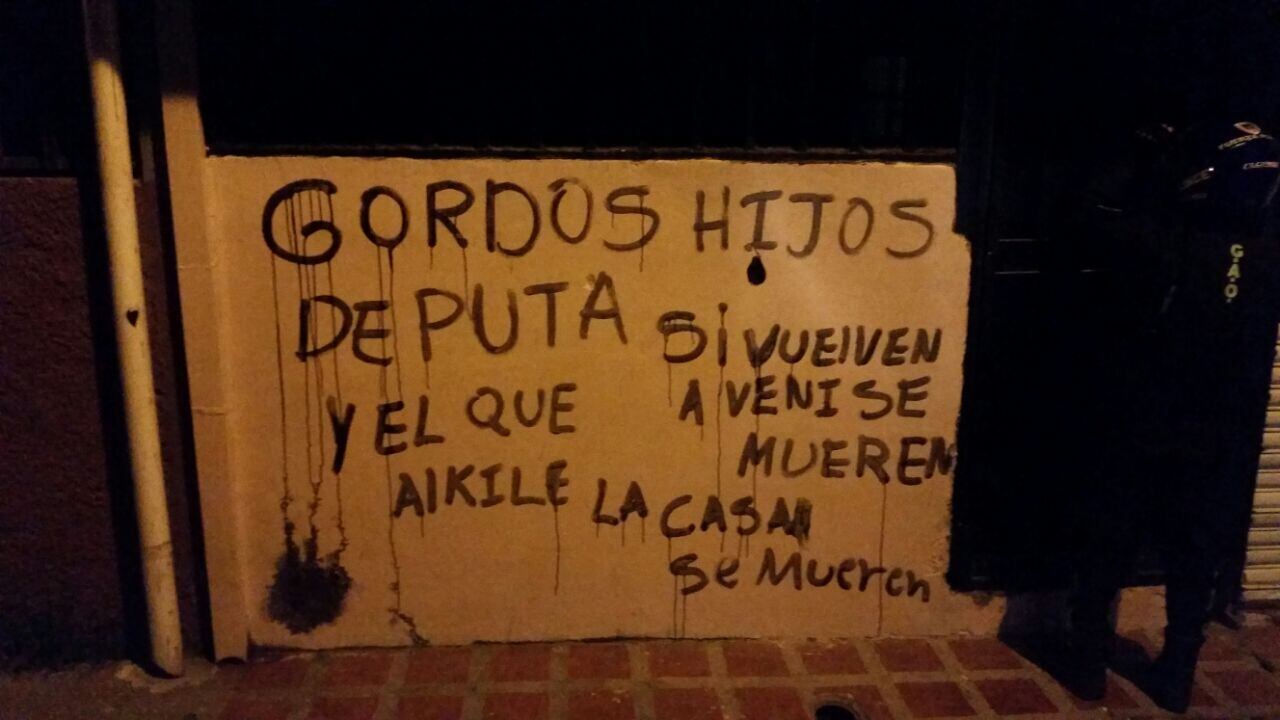 GORDOS HIJOS
DE PUTA SI VUElVEN
A VENI SE
MUEREN
Y EL QUE
AlKILE LA CASA
Se Mueren
G.A.O.